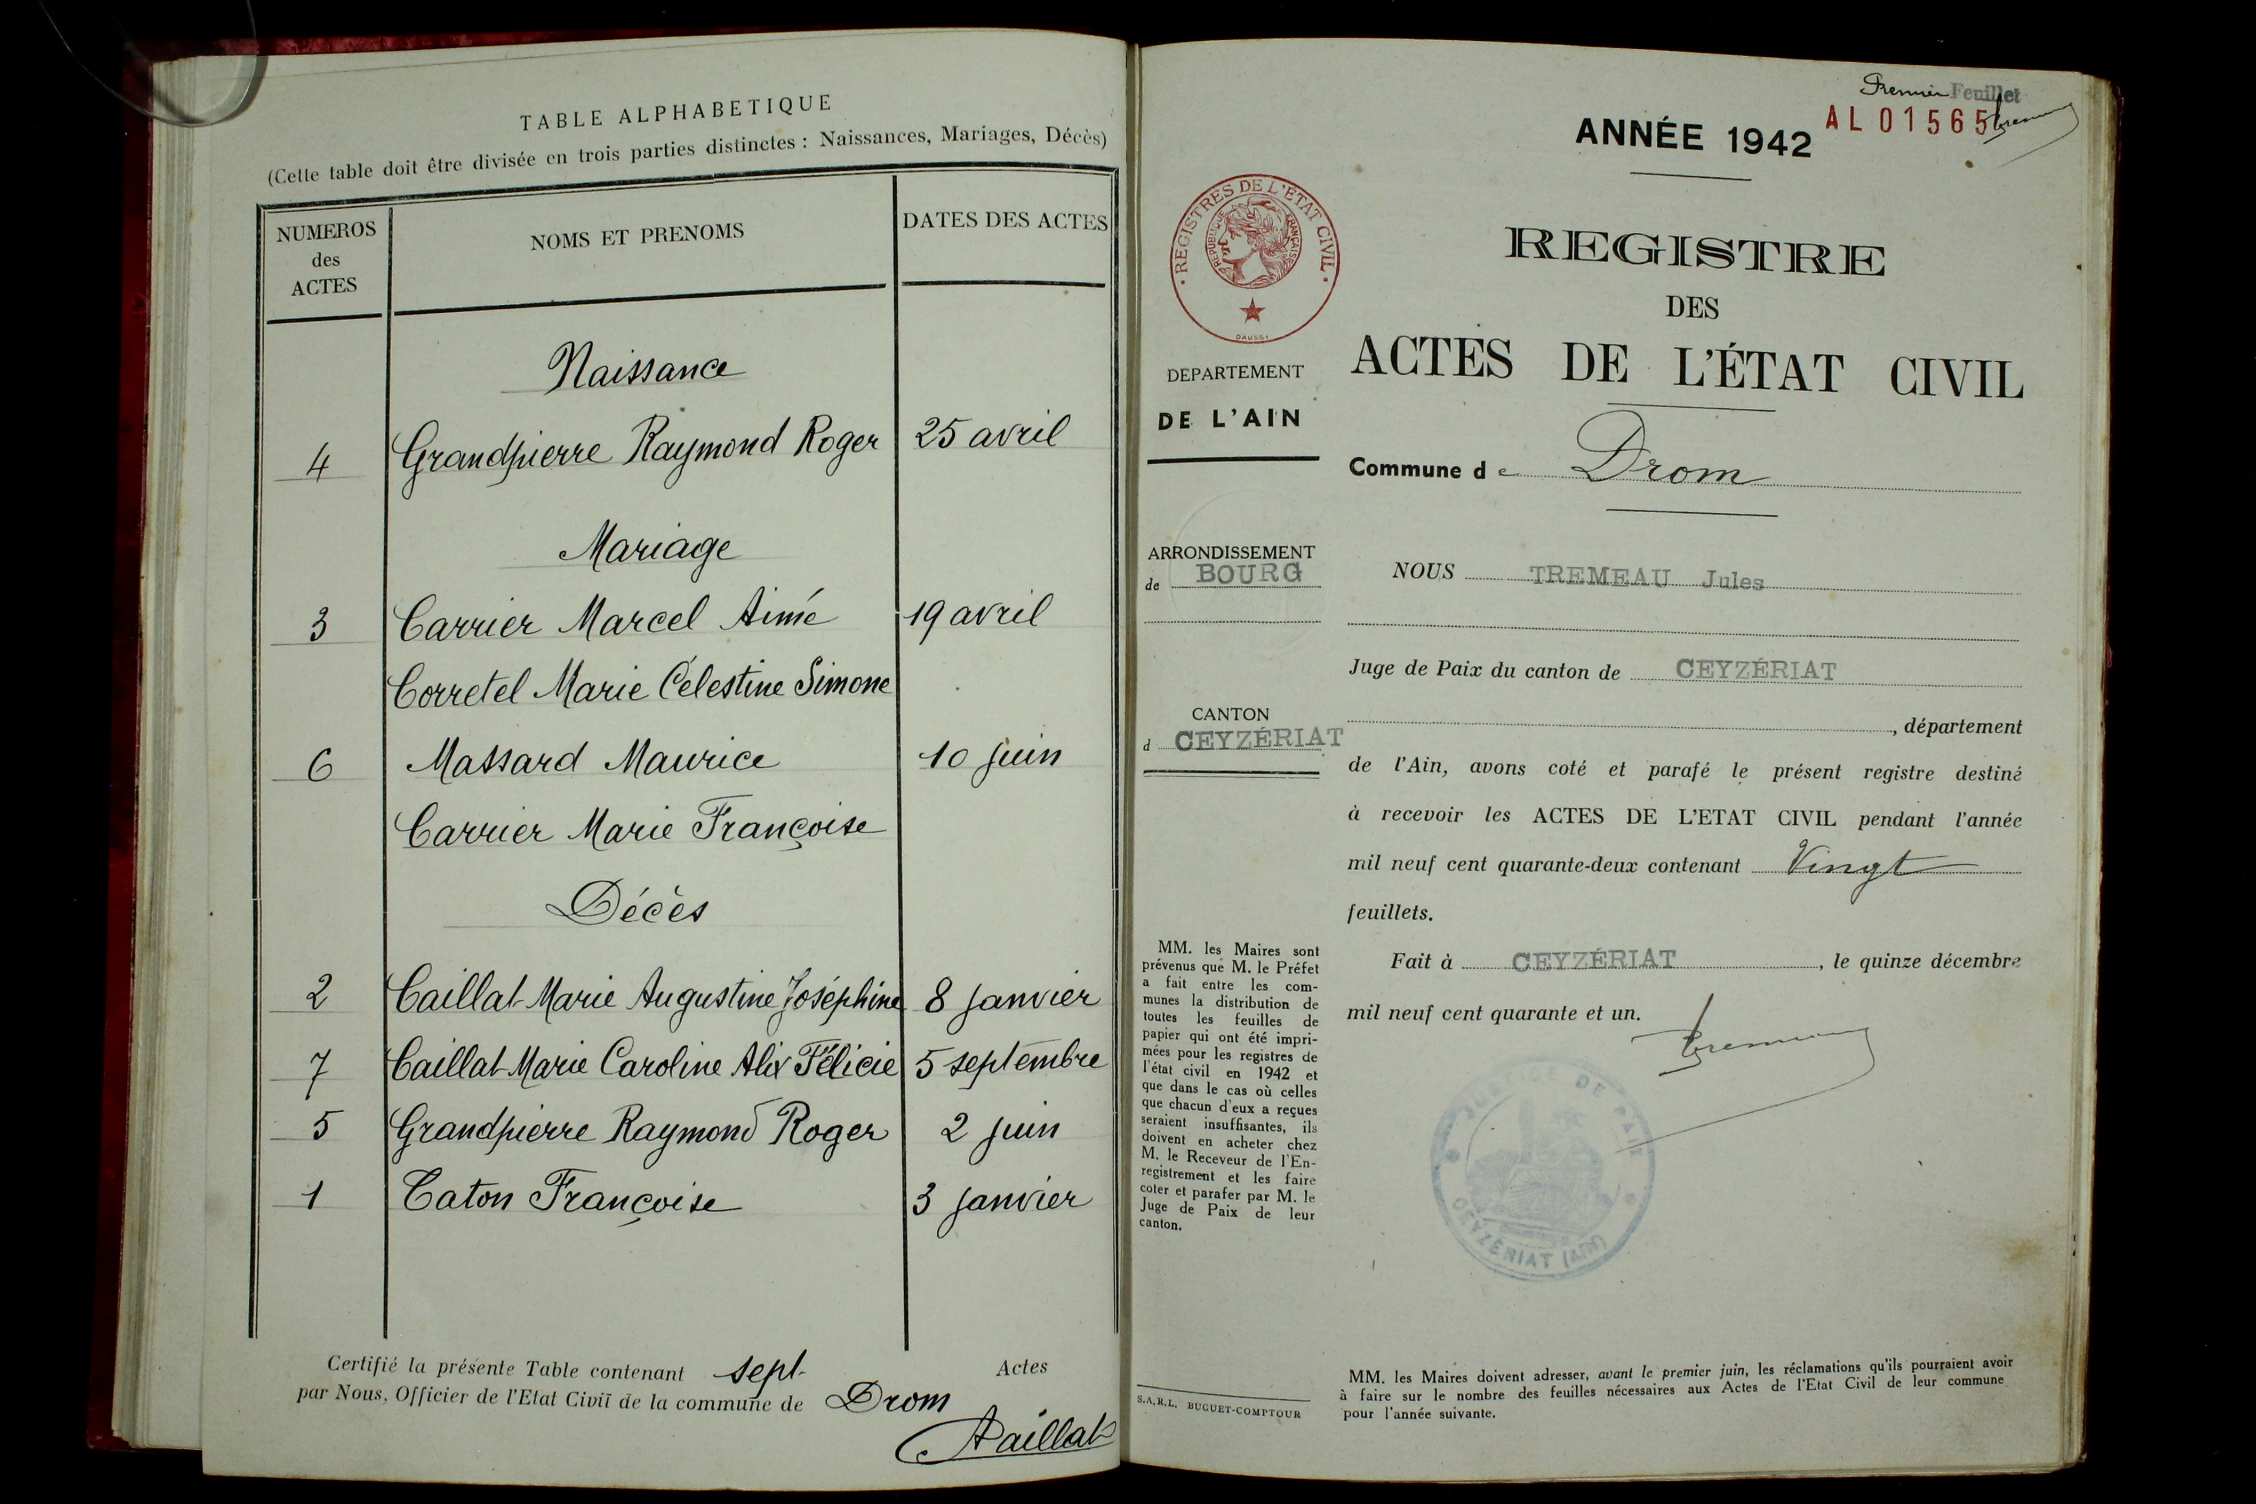 TABLE ALPHABETIQUE
(Cette table doit être divisée en trois parties distinctes : Naissances, Mariages, Décès)
NUMEROS
des
ACTES
NOMS ET PRENOMS
DATES DES ACTES
Naissance
4 Grandpierre Raymond Roger 25 avril
Mariage
3 Carrier Marcel Aimé 19 avril
Corretel Marie Célestine Simone
6 Massard Maurice 10 juin
Carrier Marie Françoise
Décès
2 Caillat Marie Augustine Joséphine 8 janvier
7 Caillat Marie Caroline Alix Félicie 5 septembre
5 Grandpierre Raymond Roger 2 juin
1 Caton Françoise 3 janvier
Certifié la présente Table contenant sept Actes
par Nous, Officier de l'Etat Civil de la commune de Drom
Premier Feuillet
AL 01565
ANNÉE 1942
REGISTRES DE L'ETAT CIVIL
REPUBLIQUE FRANÇAISE
DAUSSY
DEPARTEMENT
DE L'AIN
ARRONDISSEMENT
de BOURG
CANTON
d CEYZÉRIAT
MM. les Maires sont
prévenus que M. le Préfet
a fait entre les com-
munes la distribution de
toutes les feuilles de
papier qui ont été impri-
mées pour les registres de
l'état civil en 1942 et
que dans le cas où celles
que chacun d'eux a reçues
seraient insuffisantes, ils
doivent en acheter chez
M. le Receveur de l'En-
registrement et les faire
coter et parafer par M. le
Juge de Paix de leur
canton.
S.A.R.L. BUGUET-COMPTOUR
REGISTRE
DES
ACTES DE L'ÉTAT CIVIL
Commune de Drom
NOUS TREMEAU Jules
Juge de Paix du canton de CEYZÉRIAT
, département
de l'Ain, avons coté et parafé le présent registre destiné
à recevoir les ACTES DE L'ETAT CIVIL pendant l'année
mil neuf cent quarante-deux contenant Vingt
feuillets.
Fait à CEYZÉRIAT, le quinze décembre
mil neuf cent quarante et un.
JUSTICE DE PAIX
CEYZÉRIAT (AIN)
MM. les Maires doivent adresser, avant le premier juin, les réclamations qu'ils pourraient avoir
à faire sur le nombre des feuilles nécessaires aux Actes de l'Etat Civil de leur commune
pour l'année suivante.